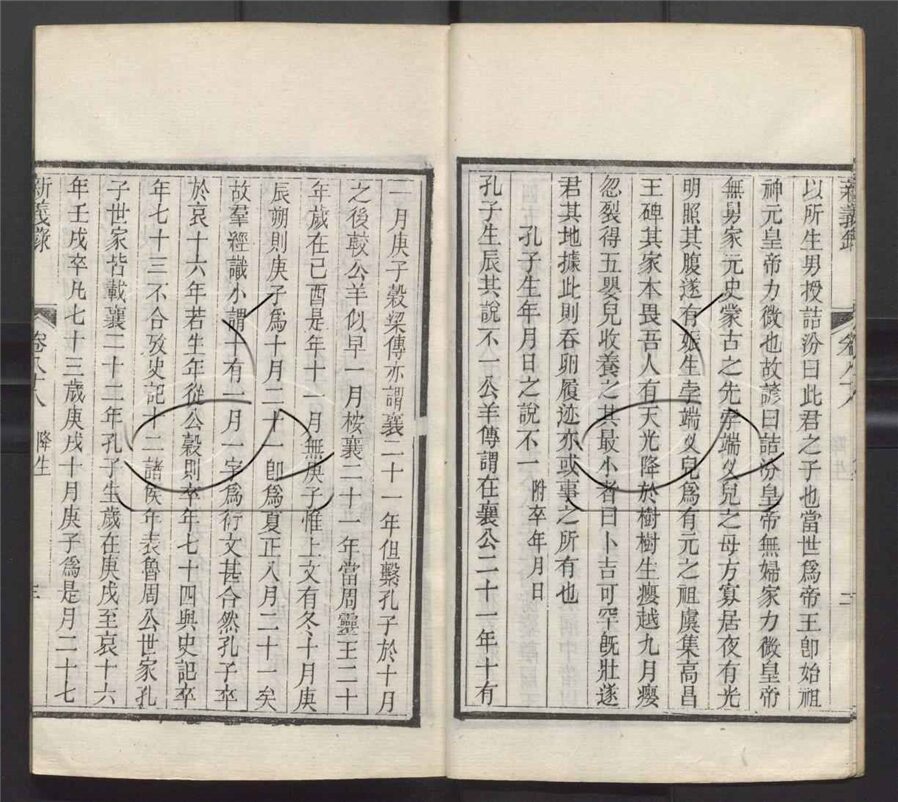 以所生男授詰汾曰此君之子也當世爲帝王卽始祖
神元皇帝力微也故諺曰詰汾皇帝無婦家力微皇帝
無舅家元史蒙古之先孛端义兒之母方寡居夜有光
明照其腹遂有娠生孛端义兒爲有元之祖虞集高昌
王碑其家本畏吾人有天光降於樹樹生癭越九月癭
忽裂得五嬰兒收養之其最小者曰卜吉可罕旣壯遂
君其地據此則吞卵履迹亦或事之所有也
孔子生年月日之說不一 附卒年月日
孔子生辰其說不一公羊傳謂在襄公二十一年十有
一月庚子穀梁傳亦謂襄二十一年但繫孔子於十月
之後較公羊似早一月桉襄二十一年當周靈王二十
年歲在己酉是年十一月無庚子惟上文有冬十月庚
辰朔則庚子爲十月二十一卽爲夏正八月二十一矣
故羣經識小謂十有一月一字爲衍文甚合然孔子卒
於哀十六年若生年從公穀則卒年七十四與史記卒
年七十三不合攷史記十二諸侯年表魯周公世家孔
子世家皆載襄二十二年孔子生歲在庚戌至哀十六
年壬戌卒凡七十三歲庚戌十月庚子爲是月二十七
新義錄 卷八十八 降生 三